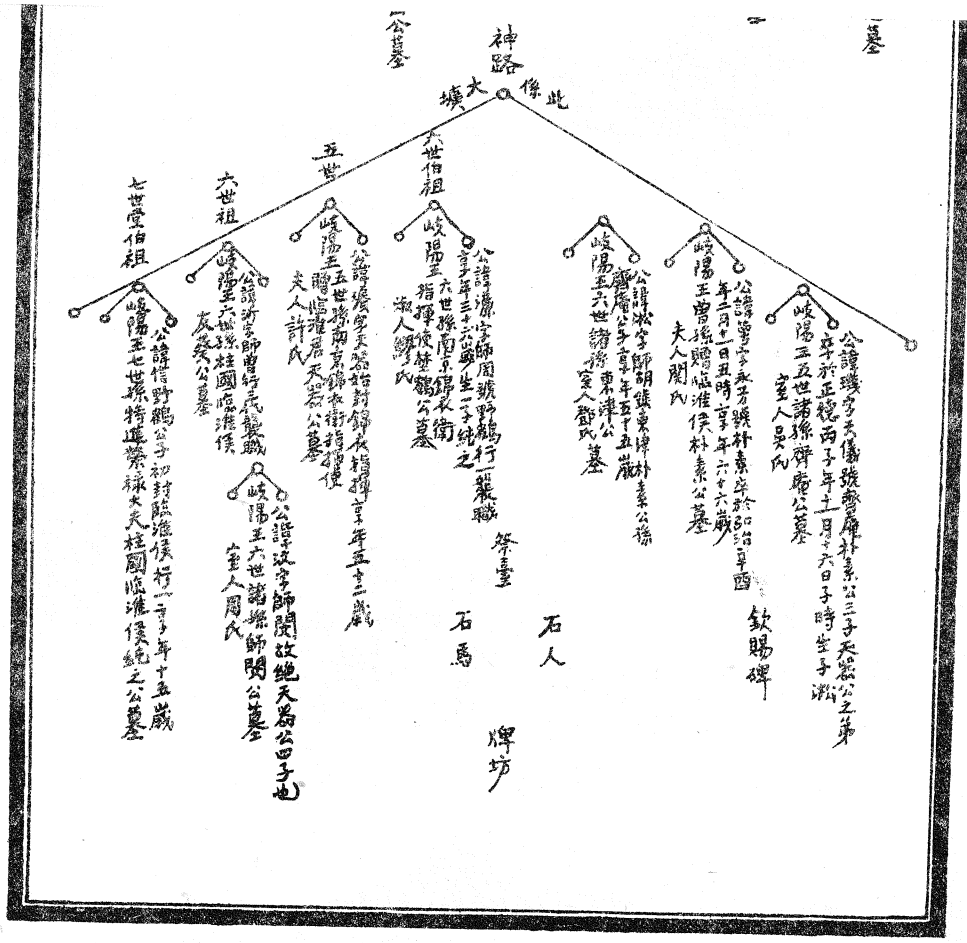 公墓
墓
神路
此係大壙
公諱璣字天儀號齊庵朴素公三子天器公之弟
卒於正德丙子年十一月十六日子時生子淞
岐陽王五世諸孫齊庵公墓
室人吳氏
公諱萼字永芳號朴素卒於弘治辛酉
年二月十一日丑時享年六十六歲
岐陽王曾孫贈臨淮侯朴素公墓
夫人閔氏
公諱淞字師胡號東津朴素公孫
齊庵公子享年五十五歲
岐陽王六世諸孫東津公
室人鄧氏墓
六世伯祖
公諱濂字師周號野鶴行一襲職
享年三十六歲生一子純之
岐陽王六世孫南京錦衣衛
指揮使埜鶴公墓
淑人繆氏
五世
公諱璿字天器始封錦衣指揮享年五十二歲
五世孫南京錦衣衛指揮使
岐陽王
贈臨淮侯天器公墓
夫人許氏
六世祖
公諱沂字師曾行義襲職
岐陽王六世孫柱國臨淮侯
友葵公墓
公諱汶字師閔故絕天器公四子也
岐陽王六世諸孫師閔公墓
室人周氏
七世堂伯祖
公諱惜野鶴公子初封臨淮侯行一享年十五歲
岐陽王七世孫特進榮祿大夫柱國臨淮侯純之公墓
祭臺
石人
石馬
欽賜碑
牌坊